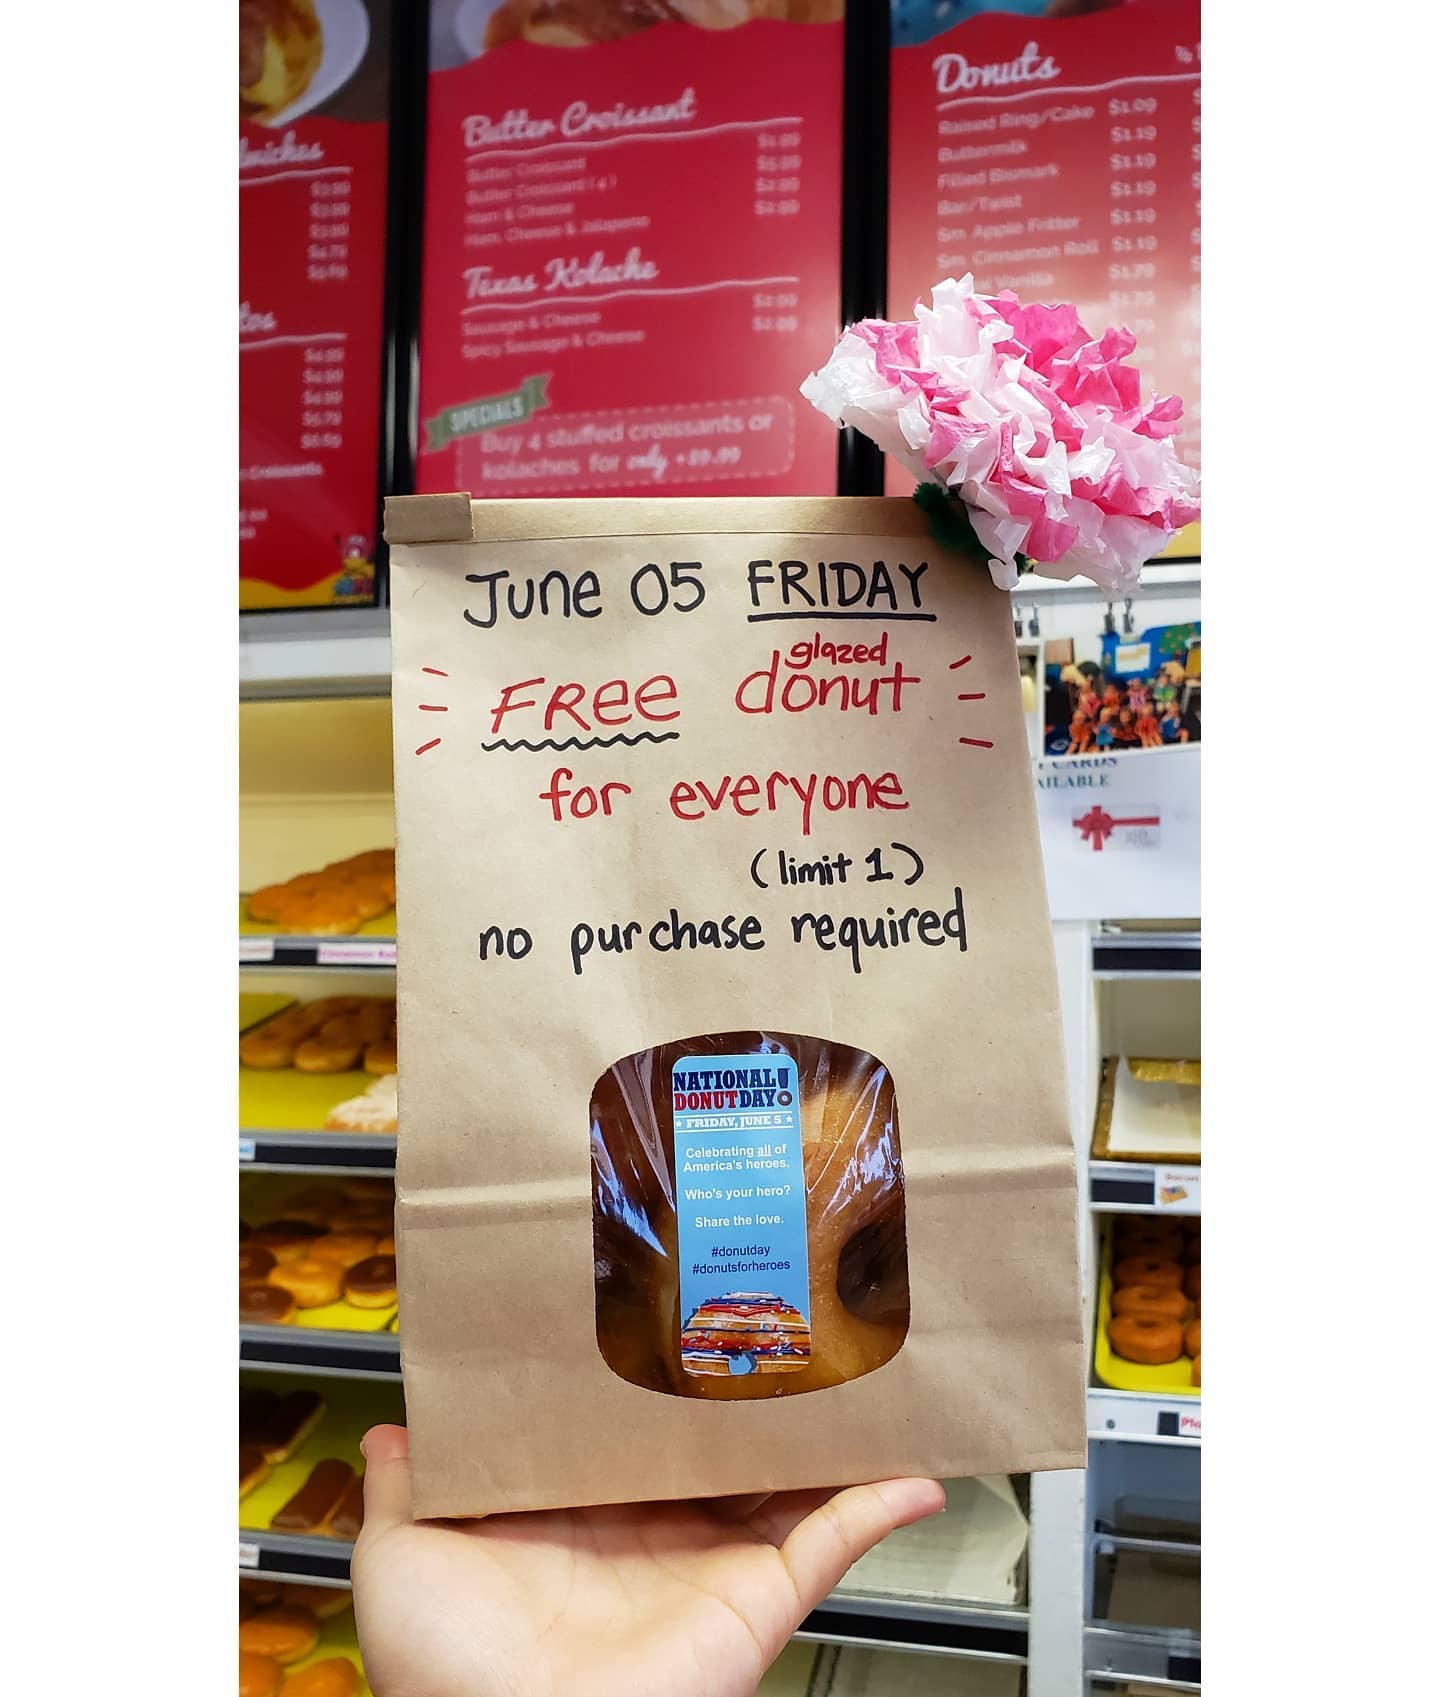 Butter Croissant
Butter Croissant
Butter Croissant (4)
Ham & Cheese
Ham, Cheese & Jalapeno
Texas Kolache
Sausage & Cheese
Spicy Sausage & Cheese
SPECIALS
Buy 4 stuffed croissants or
kolaches for only
Donuts
Raised Ring/Cake $1.09
Buttermilk $1.19
Filled Bismark $1.19
Bar/Twist $1.19
Sm. Apple Fritter $1.19
Sm. Cinnamon Roll $1.19
June 05 FRIDAY
FRee glazed donut
for everyone
(limit 1)
no purchase required
NATIONAL
DONUT DAY!
★ FRIDAY, JUNE 5 ★
Celebrating all of
America's heroes.
Who's your hero?
Share the love.
#donutday
#donutsforheroes
CARDS